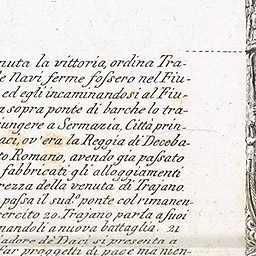 nuta la vittoria, ordina Tra-
e Navi, ferme fossero nel Fiu-
ed egli incaminandosi al Fiu-
a sopra ponte di barche lo tra-
iungere a Sermazia, Città prin-
aci, ov'era la Reggia di Deceba-
to Romano, avendo già passato
fabbricati gli alloggiamenti
rezza della venuta di Trajano.
passa il sud.º ponte col rimanen-
esercito 20. Trajano parla a suoi
nandoli a nuova battaglia. 21
iadore de Daci si presenta a
far proggetti di pace ma nien-